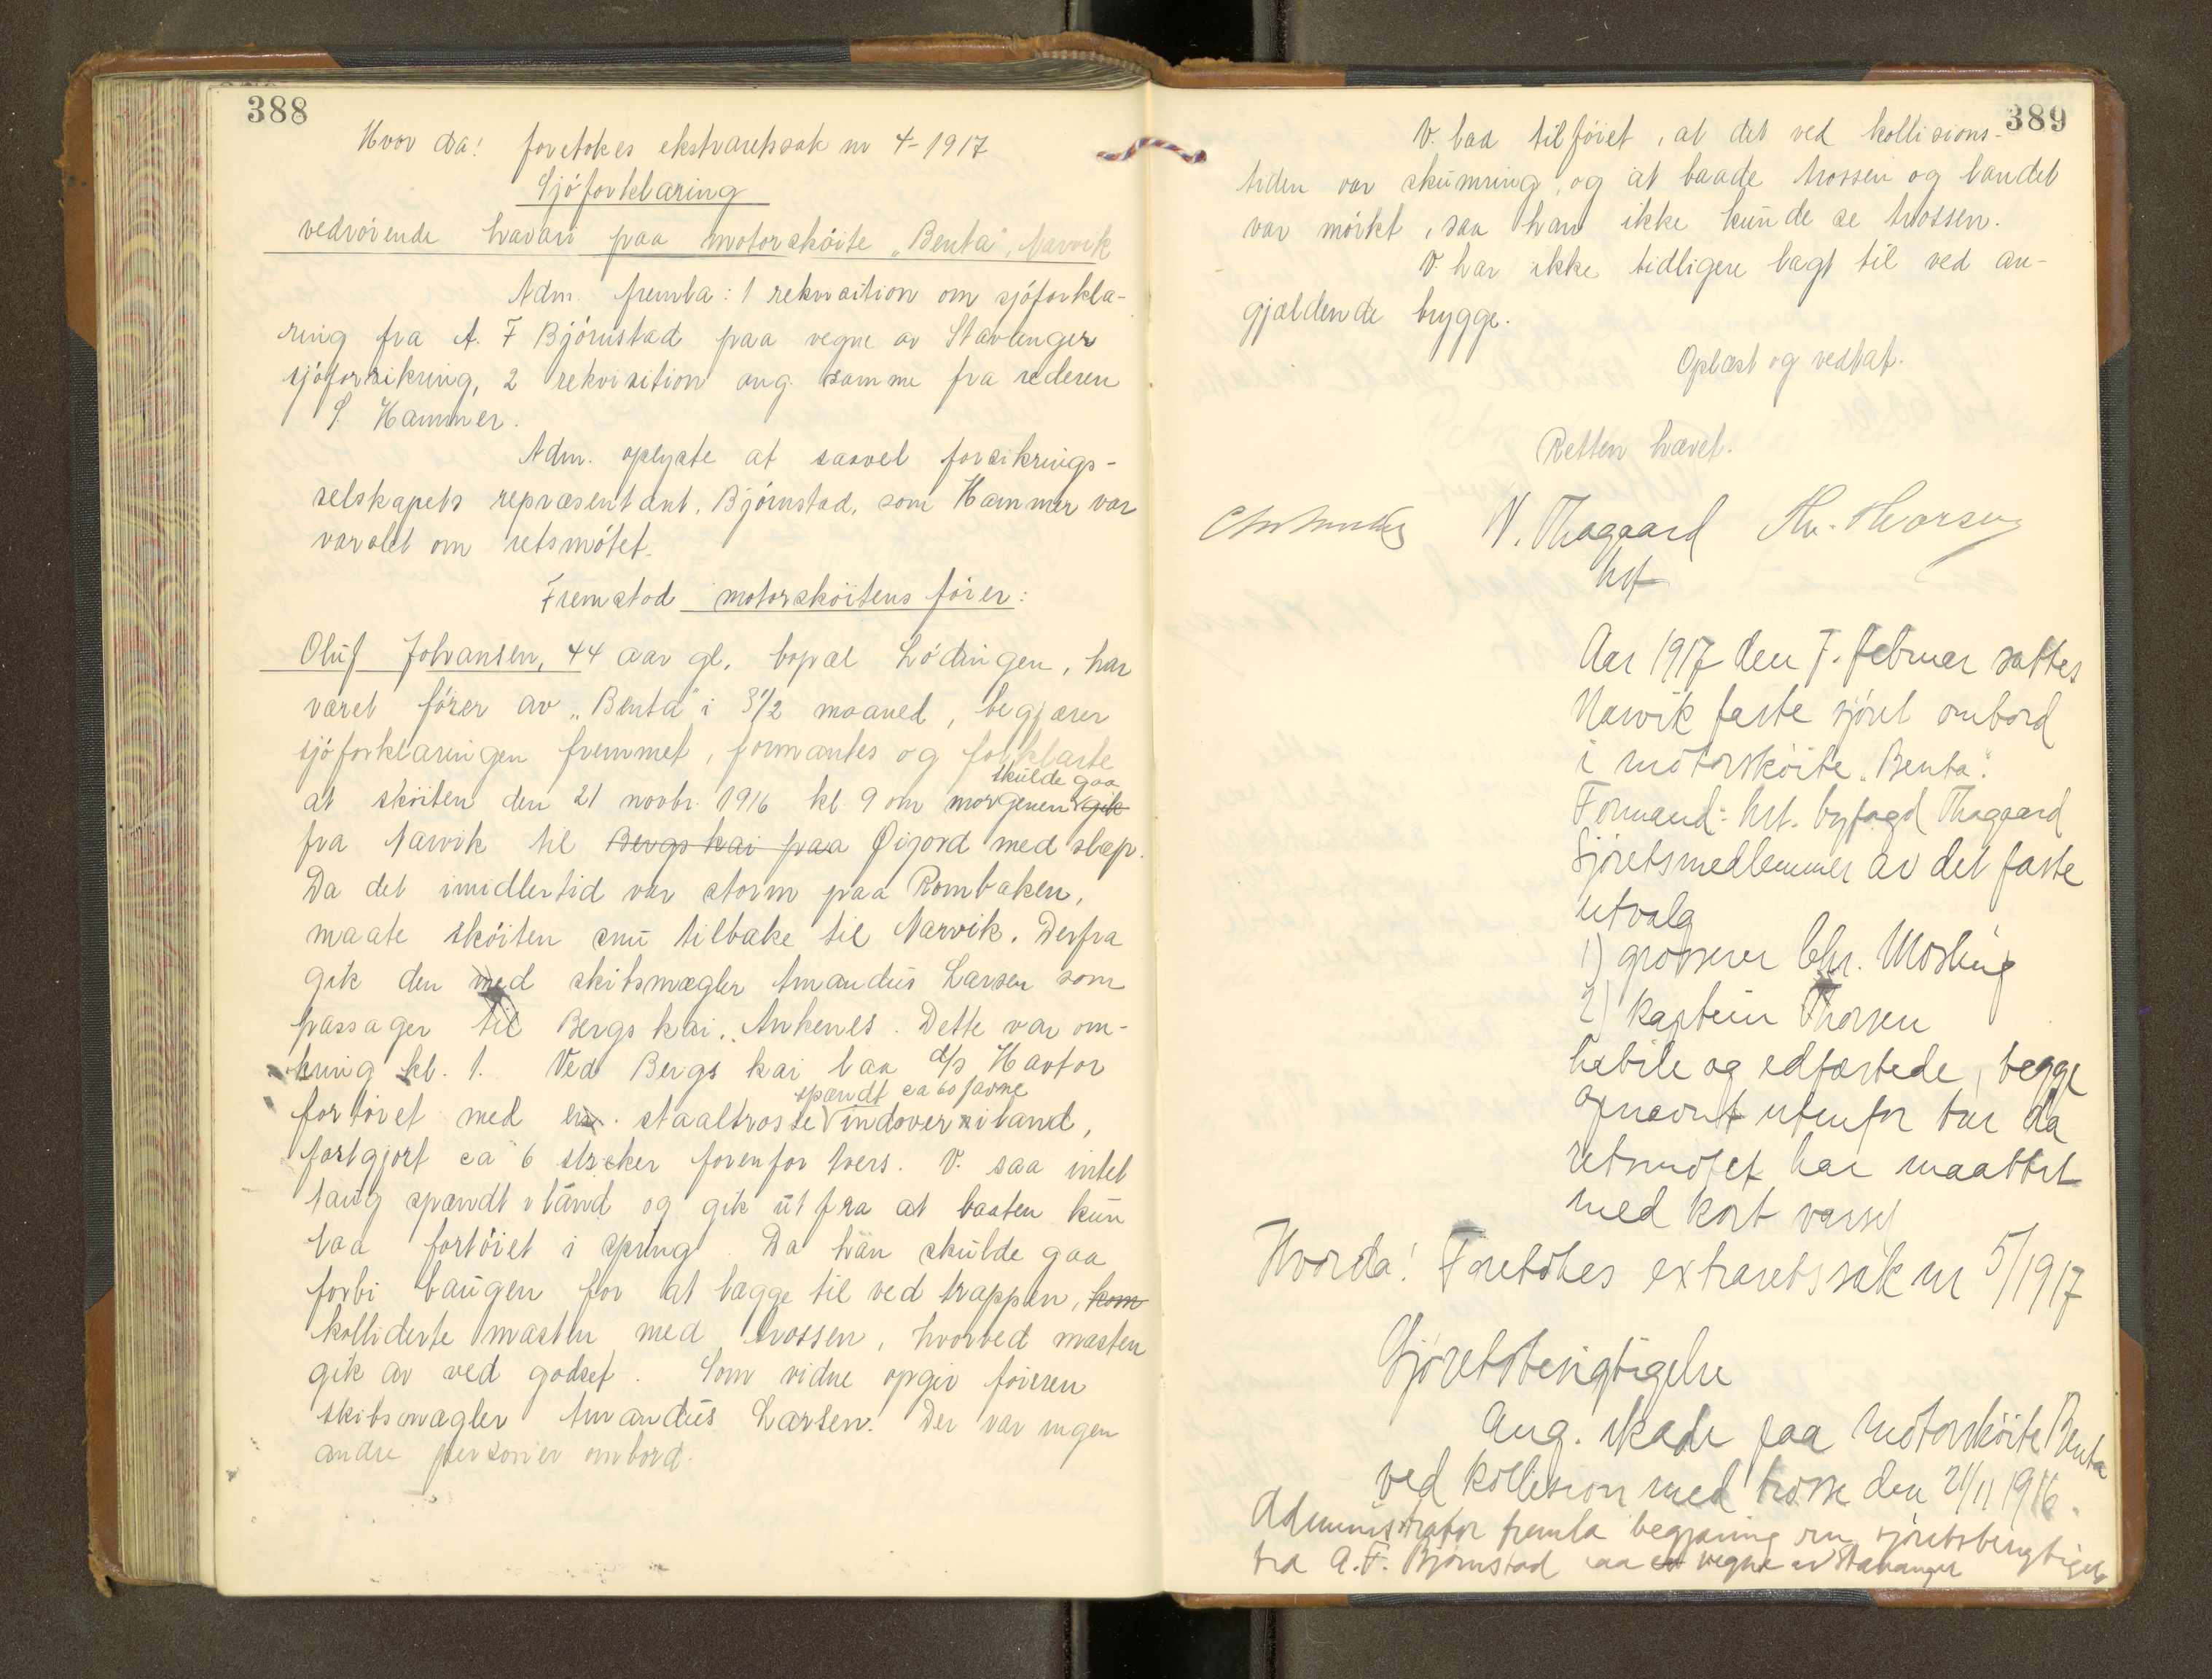 388
Hvor da! foretokes ekstraretssak nr 4-1917
Sjöforklaring
vedrörende havari paa motorsköite „Benta", Narvik
Adm. fremla: 1 rekvisition om sjöforkla-
ring fra A. F Björnstad paa vegne av Stavanger
sjöforsikring, 2 rekvisition ang. samme fra rederen
S. Hammer.
Adm. oplyste at saavel forsikrings-
selskapets repræsentant, Björnstad, som Hammer var
varslet om retsmötet.
Fremstod motorsköitens förer:
Oluf Johansen, 44 aar gl., bopæl Lödingen, har
været förer av „Benta" i 3 1/2 maaned, begjærer
sjöforklaringen fremmet, formantes og forklarte
at sköiten den 21 novbr. 1916 kl. 9 om morgenen skulde gaa gik
fra Narvik til Bergs kai paa Øijord med slæp.
Da det imidlertid var storm paa Rombaken,
maate sköiten snu tilbake til Narvik. Derfra
gik den med skibsmægler Amandus Larsen som
passager til Bergs kai, Ankenes. Dette var om-
kring kl. 1. Ved Bergs kai laa d/s Havtor
fortöiet med en staaltrosse spændt ca 60 favne indover i land,
fastgjort ca 6 streker forenfor tvers. V. saa intet
taug spændt i land og gik ut fra at baaten kun
laa fortöiet i spring. Da han skulde gaa
forbi baugen for at lægge til ved trappen, kom
kolliderte masten med trossen, hvorved masten
gik av ved godset. Som vidne opgir föreren
skibsmægler Amandus Larsen. Der var ingen
andre personer ombord.
389
V. laa tilföiet, at det ved kollisions-
tiden var skumring, og at baade trossen og landet
var mörkt, saa han ikke kunde se trossen.
V. har ikke tidligere lagt til ved an-
gjældende brygge.
Oplæst og vedtat.
Retten hævet.
N. Thagaard
hst
Aar 1917 den 7. februar sattes
Narvik faste sjöret ombord
i motorsköite „Benta".
Formand: hst. byfogd Thagaard
Sjöretsmedlemmer av det faste
utvalg
1) grosserer Chr. Mosling
2) kaptein Thorsen
habile og edfæstede, begge
opnævnt utenfor tur da
retsmötet har maattet
med kort varsel
Hvorda! Foretokes extraretssak nr 5/1917
Sjöretsbesigtigelse
ang. skade paa motorsköite Benta
ved kollision med trosse den 21/11 1916.
Administrator fremla begjæring om sjöretsbesigtigelse
fra A. F. Björnstad paa vegne av Stavanger